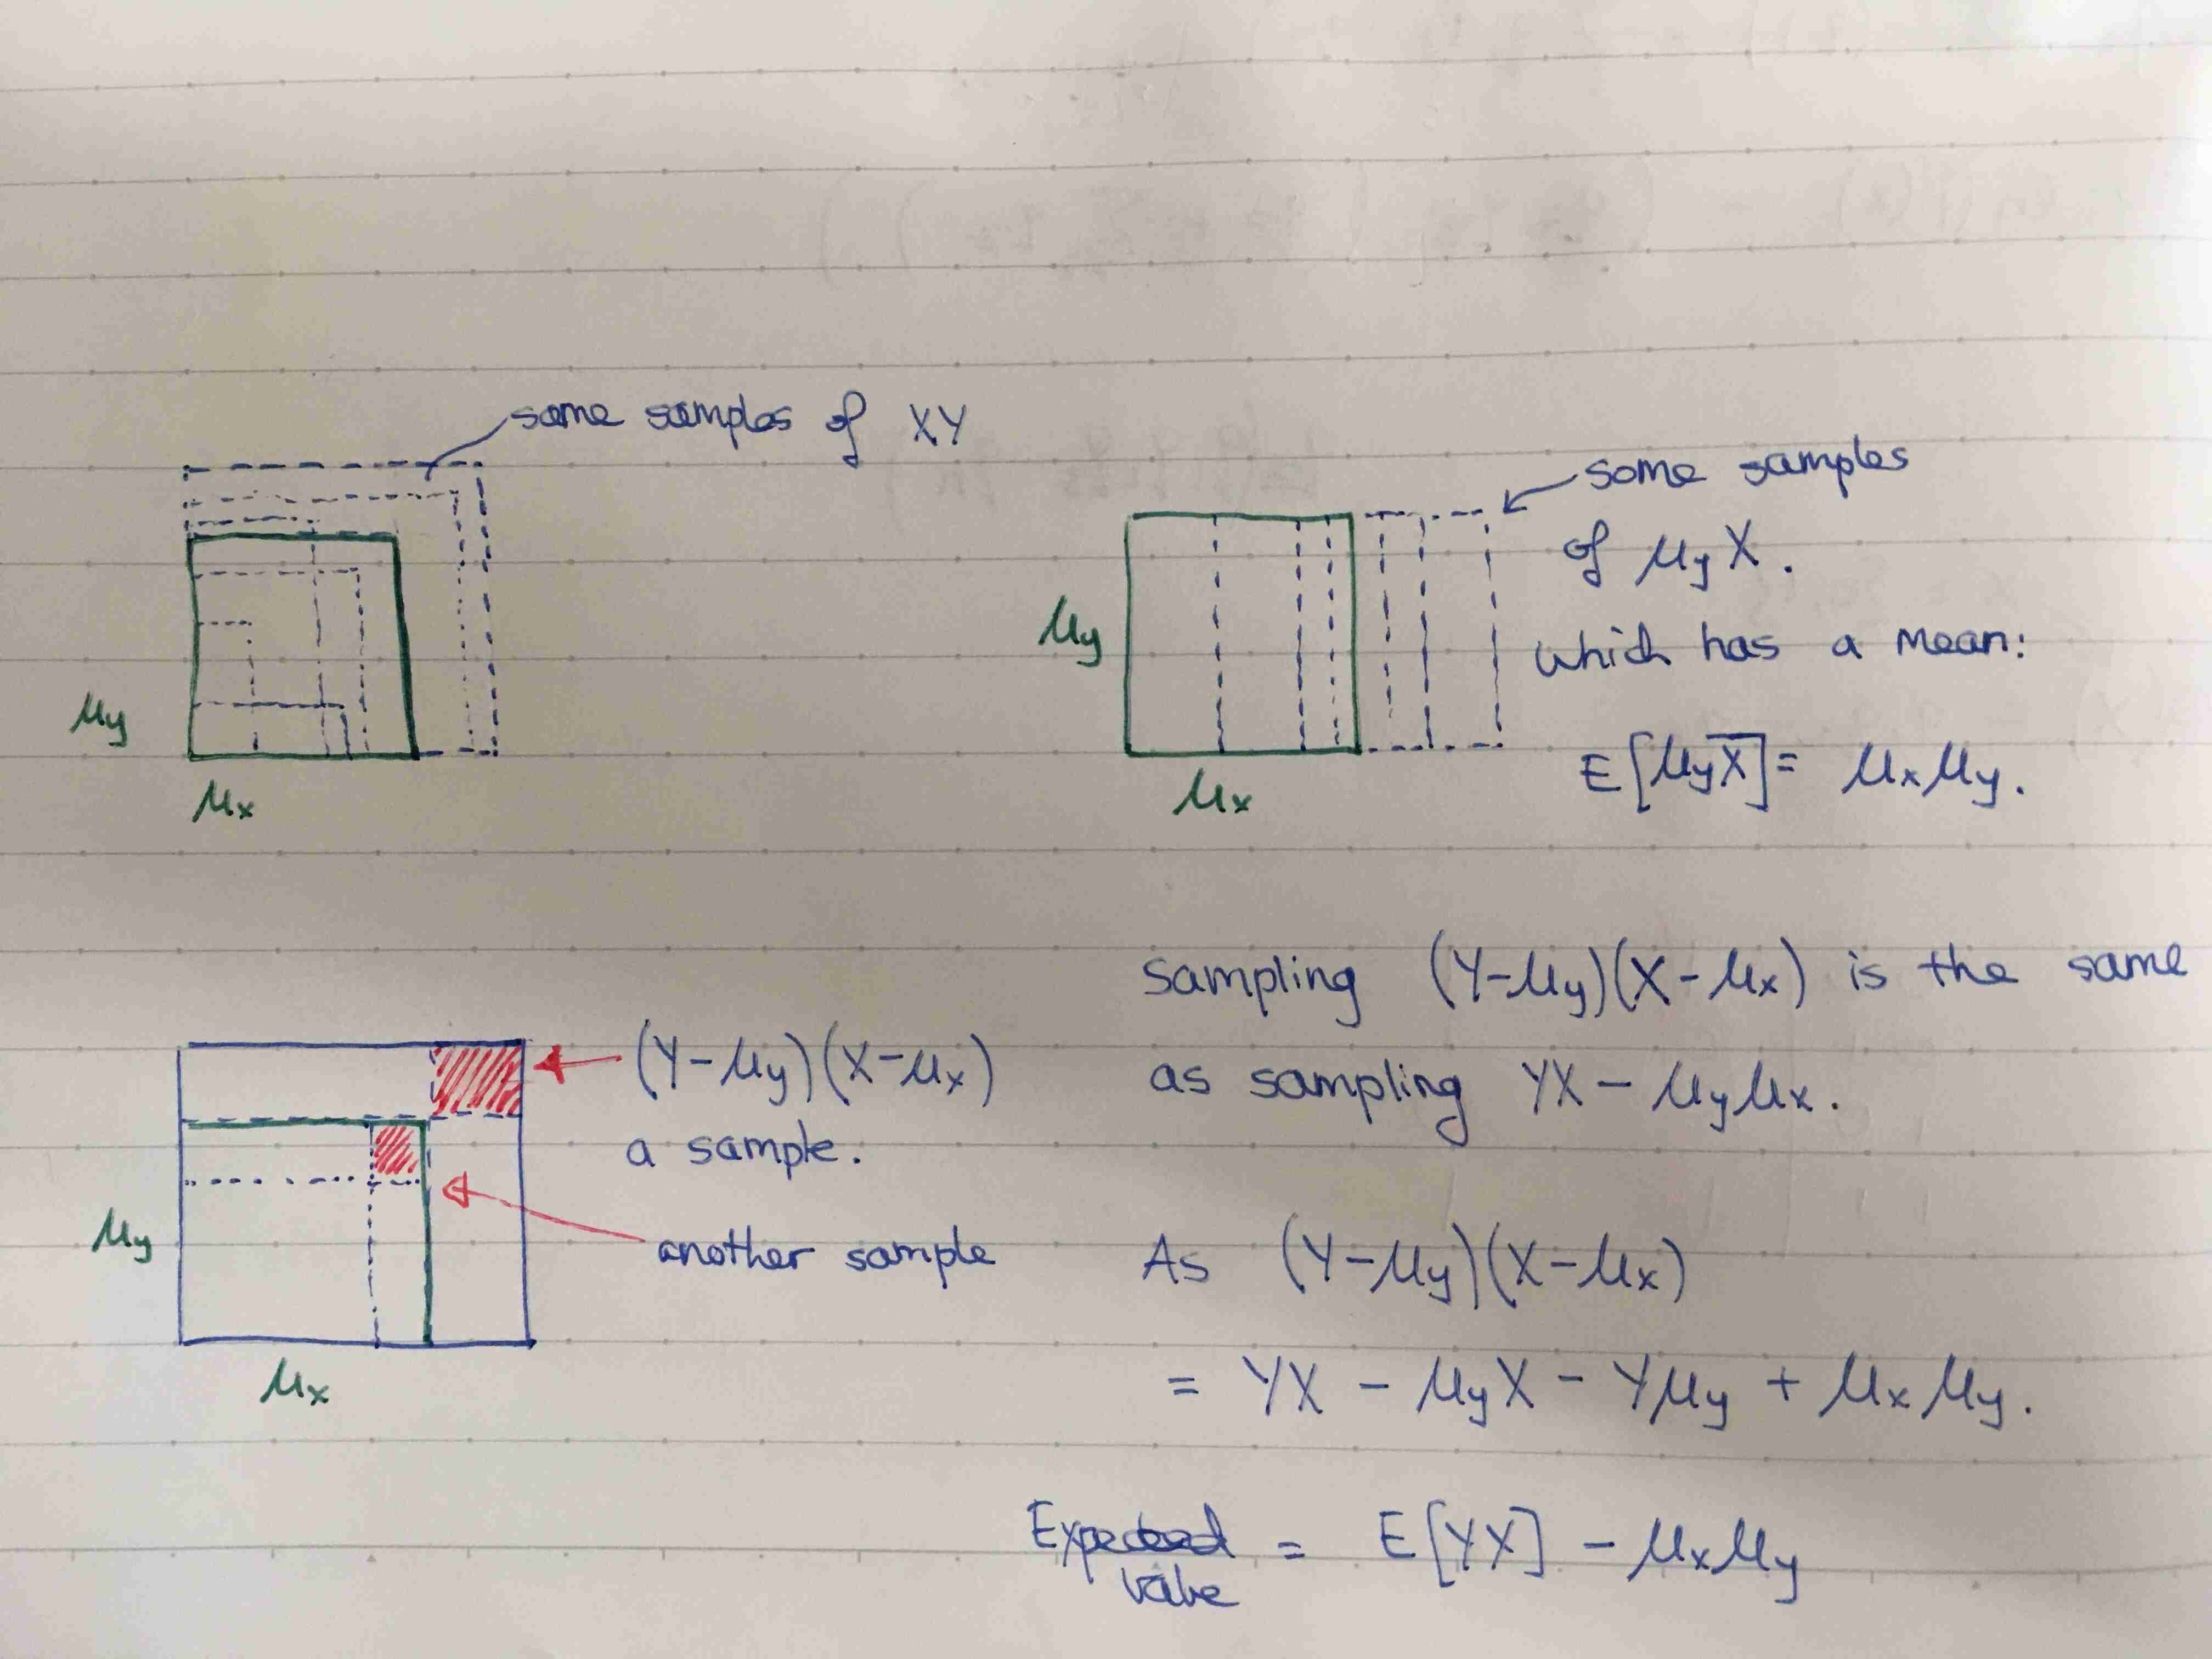 some samples of XY
μy
μx
some samples
of μyX.
which has a mean:
E[μyX] = μxμy.
μy
μx
(Y-μy)(X-μx)
a sample.
another sample
μy
μx
Sampling (Y-μy)(X-μx) is the same
as sampling YX - μyμx.
As (Y-μy)(X-μx)
= YX - μyX - Yμy + μxμy.
Expected = E[YX] - μxμy
value